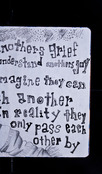 nothers grief
understand anothers joy
imagine they can
h another
in reality they
only pass each
other by